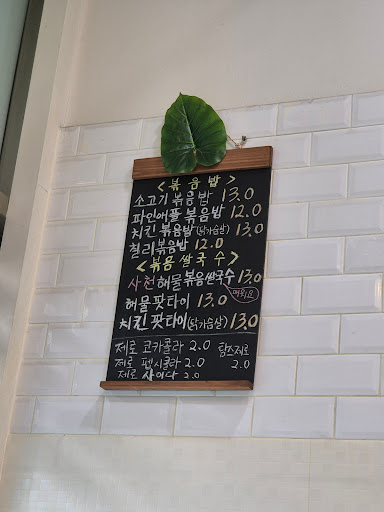 <볶음밥>
소고기 볶음밥 13.0
파인애플 볶음밥 12.0
치킨 볶음밥(닭가슴살) 13.0
칠리볶음밥 12.0
<볶음쌀국수>
사천 해물볶음쌀국수 13.0
매워요
해물 팟타이 13.0
치킨 팟타이(닭가슴살) 13.0
제로 코카콜라 2.0 탐스제로
제로 펩시콜라 2.0 2.0
제로 사이다 2.0